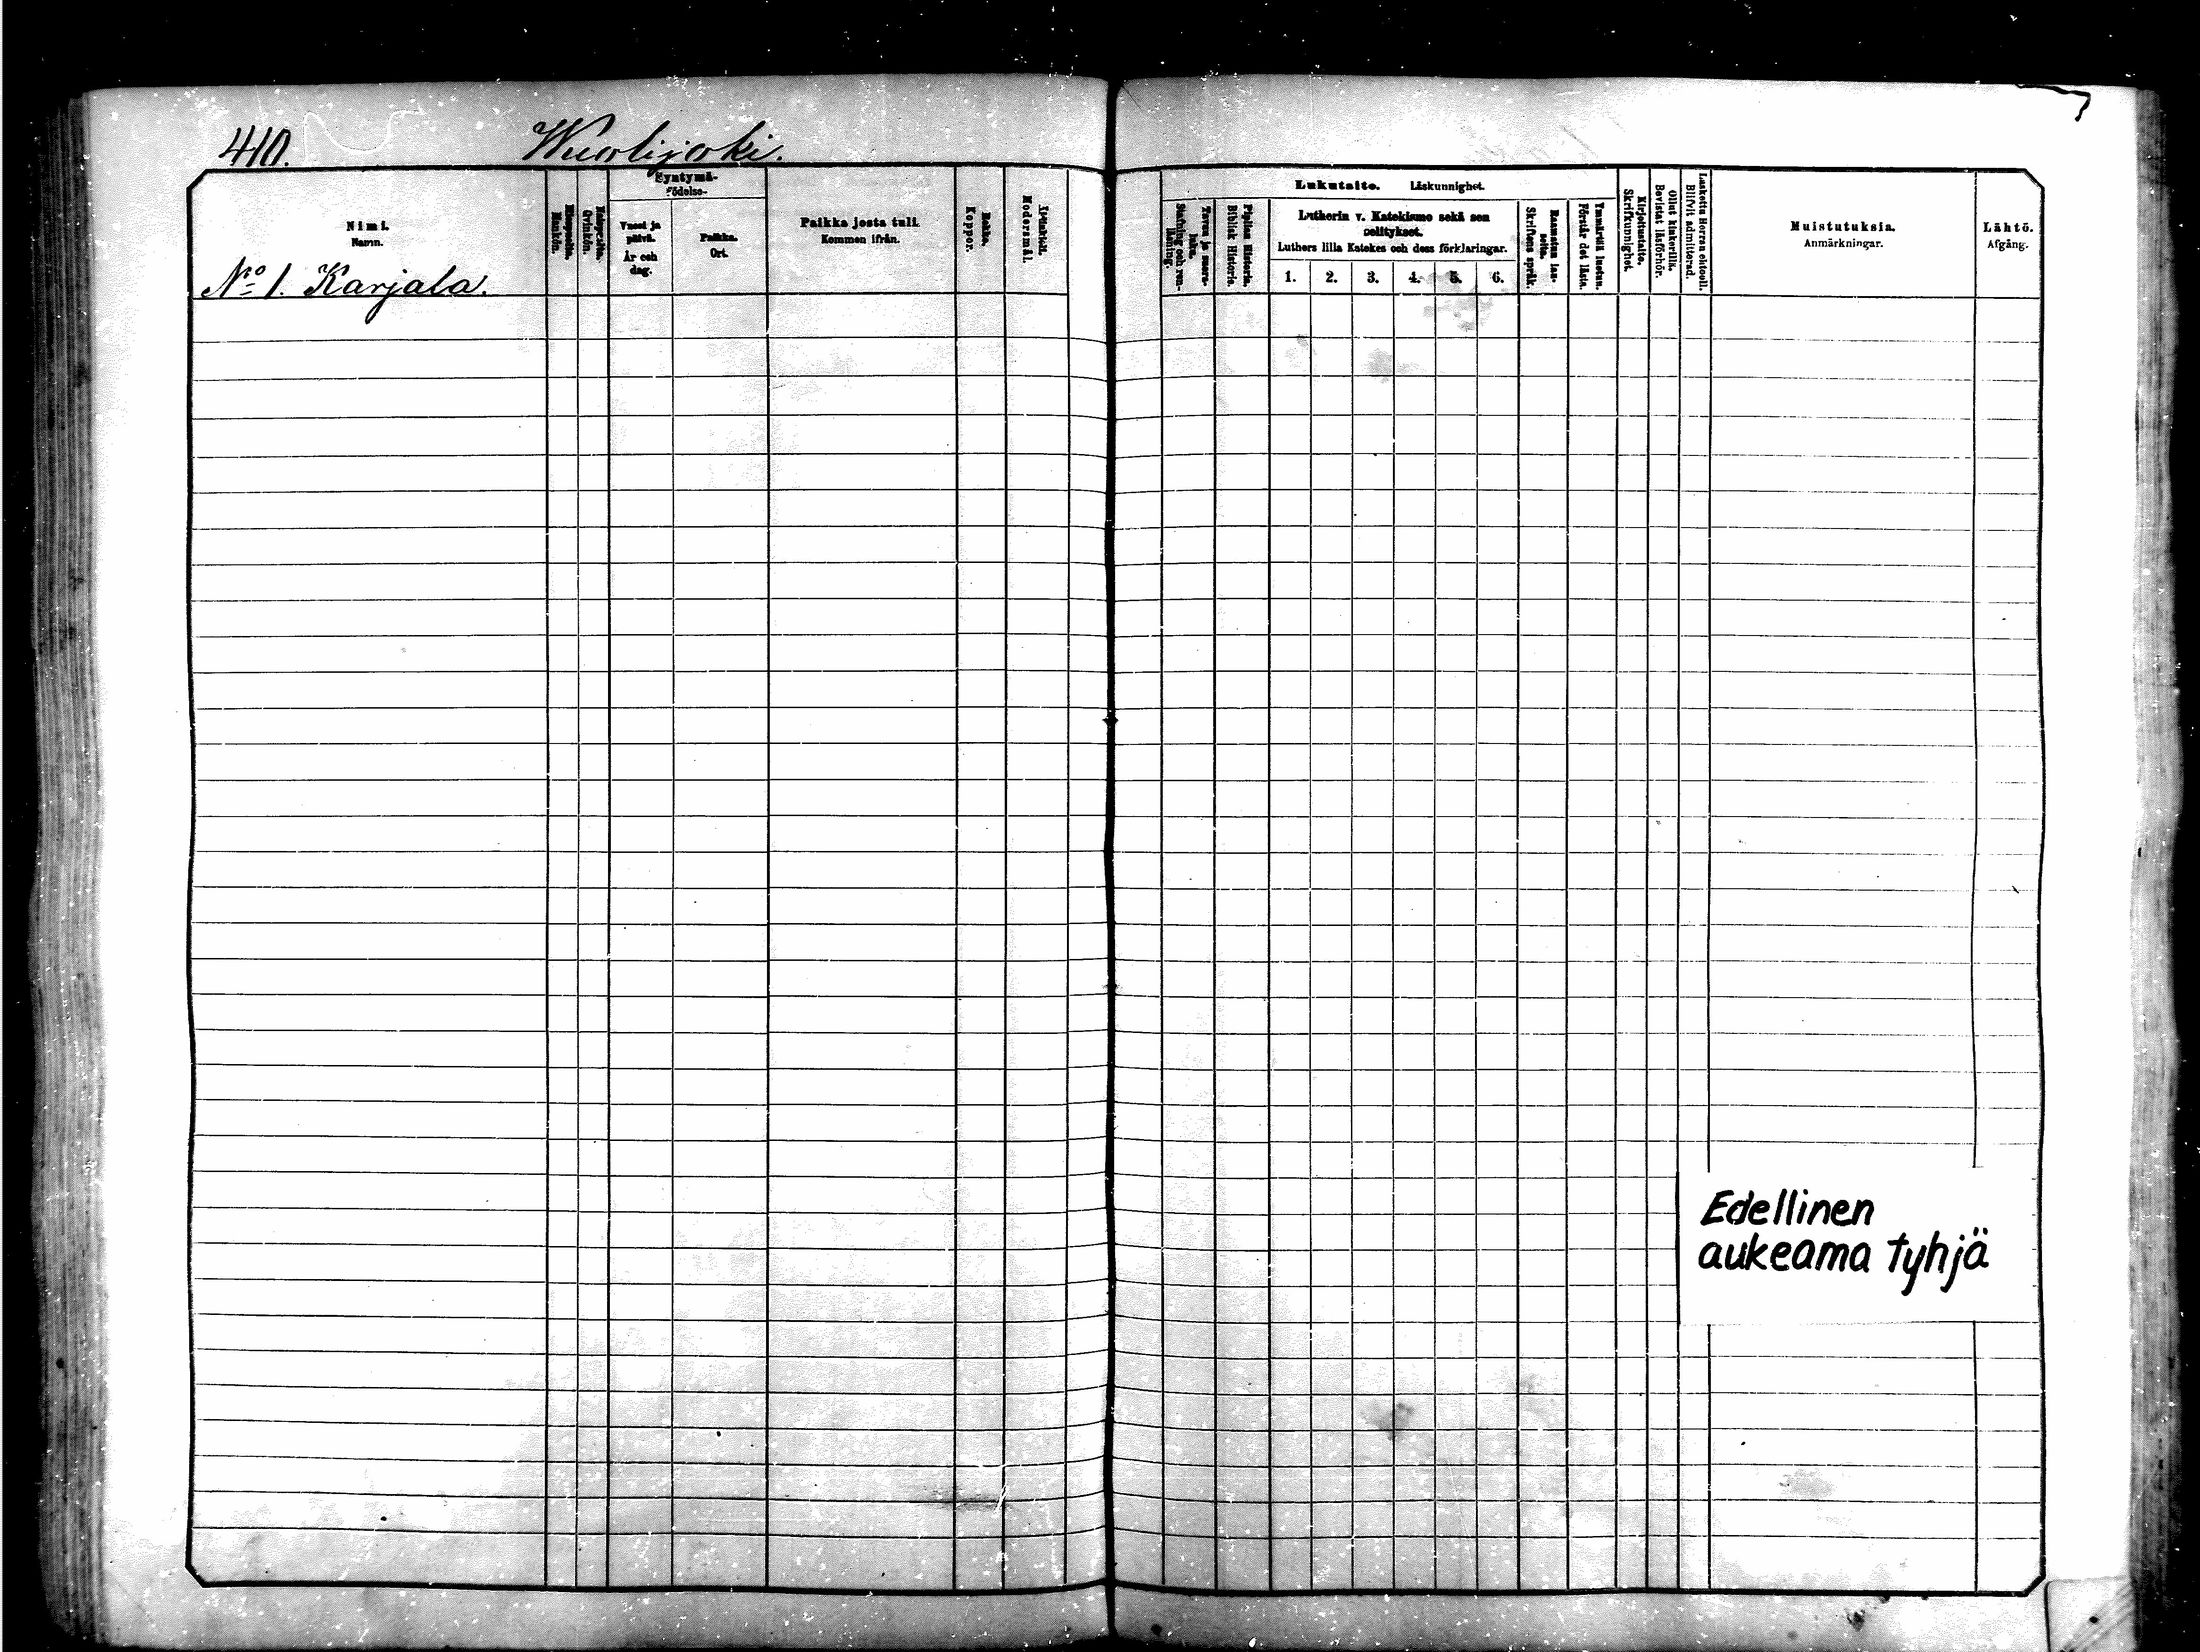 410.
Wuolijoki.
Nimi.
Namn.
Miespuolia.
Mankön.
Qvinkön.
Syntymä-
Födelse-
Vuosi ja
päivä.
År och
dag.
Paikka.
Ort.
Paikka josta tuli.
Kommen ifrån.
Rokko.
Koppor.
Modersmål.
No 1. Karjala.
Lukutaito. Läskunnighet.
Tavaa ja suora-
luku.
Stafning och ren-
läsning.
Piplian Historia.
Biblisk Historia.
Lutherin v. Katekismo sekä sen
selitykset.
Luthers lilla Katekes och dess förklaringar.
1. 2. 3. 4. 5. 6.
Raamatun lau-
seita.
Skriftens språk.
Ymmärtää luetun.
Förstår det lästa.
Kirjoitustaito.
Skrifkunnighet.
Ollut kinkerillä.
Bevistat läsförhör.
Laskettu Herran ehtoolle.
Blifvit admitterad.
Muistutuksia.
Anmärkningar.
Lähtö.
Afgång.
Edellinen
aukeama tyhjä